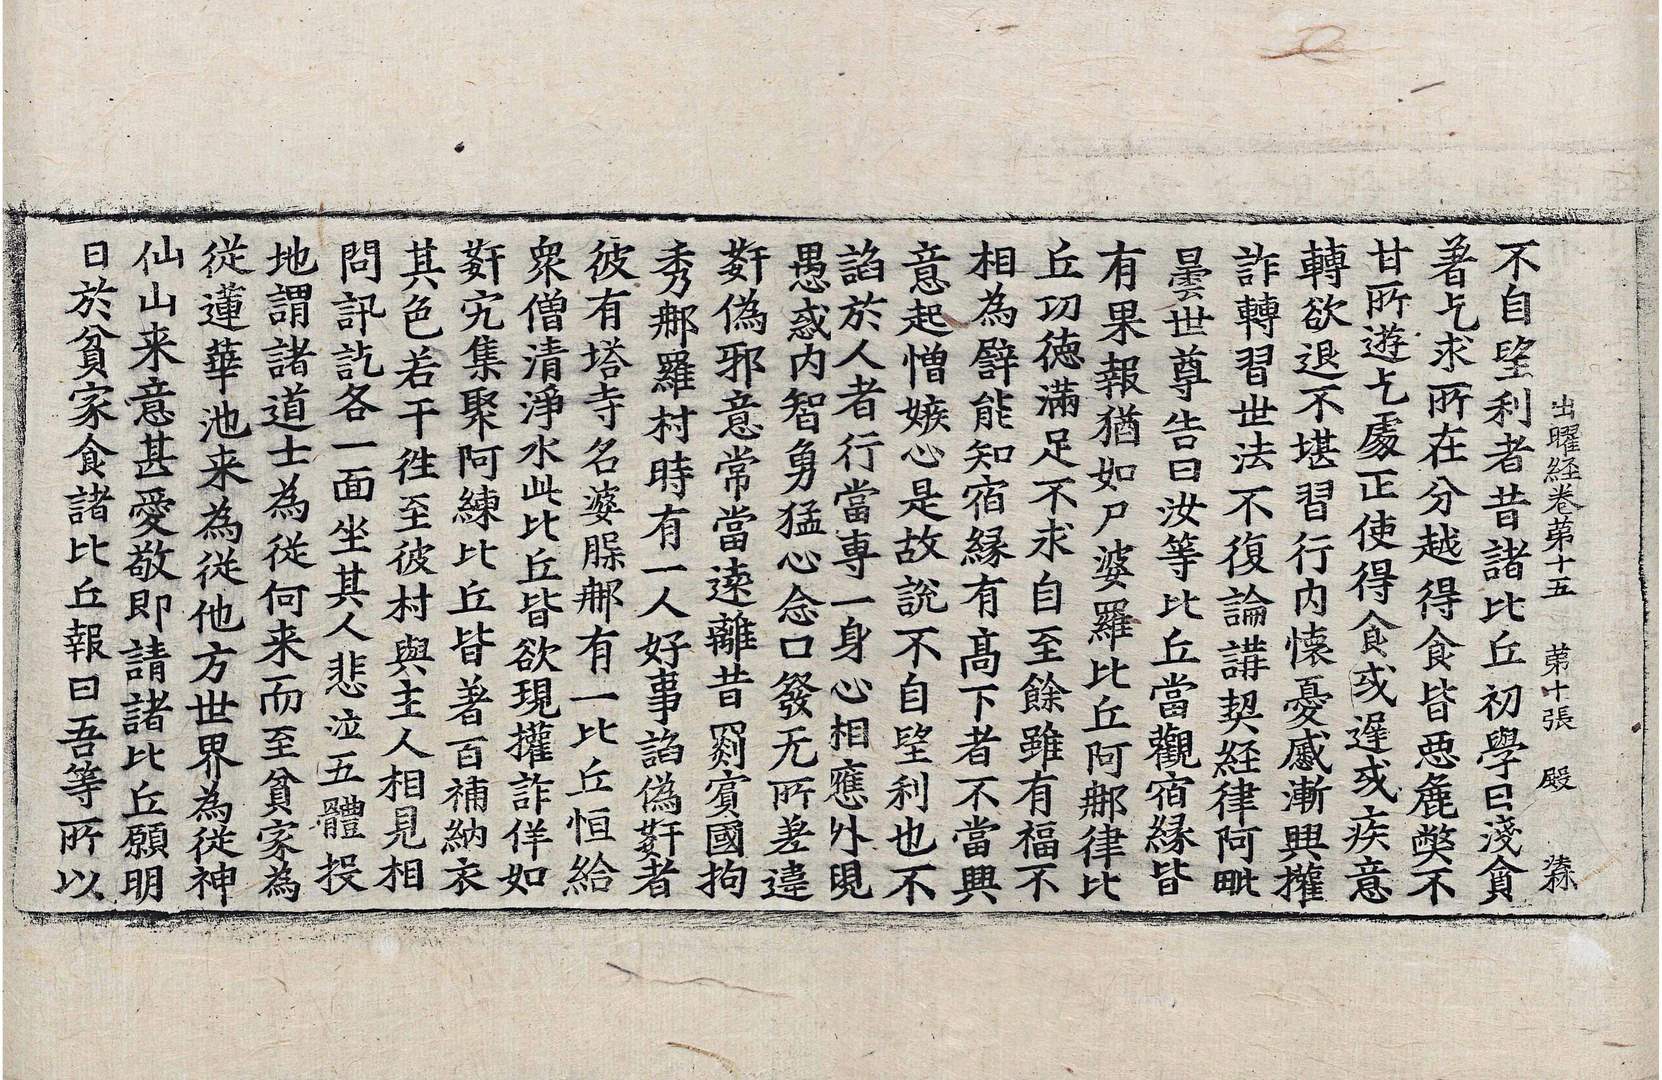 出曜経巻第十五　第十張　殿　㴊
不自望利者昔諸比丘初學日淺貪
著乞求所在分越得食皆惡麁弊不
甘所遊乞處正使得食或遲或疾意
轉欲退不堪習行内懷憂慼漸興攉
詐轉習世法不復論講契経律阿毗
曇世尊告曰汝等比丘當觀宿縁皆
有果報猶如尸婆羅比丘阿郍律比
丘功徳滿足不求自至餘雖有福不
相為譬能知宿縁有髙下者不當興
意起憎嫉心是故說不自望利也不
諂於人者行當專一身心相應外現
愚惑内智勇猛心念口發无所差違
姧偽邪意常當遠離昔罽賓國拘
秀郍羅村時有一人好事諂偽姧者
彼有塔寺名婆𦜕郍有一比丘恒給
衆僧清淨水此比丘皆欲現攉詐佯如
姧宄集聚阿練比丘皆著百補納衣
其色若干徃至彼村與主人相見相
問訊訖各一面坐其人悲泣五體投
地謂諸道士為従何来而至貧家為
従蓮華池来為従他方世界為従神
仙山来意甚愛敬即請諸比丘願明
日於貧家食諸比丘報曰吾等所以